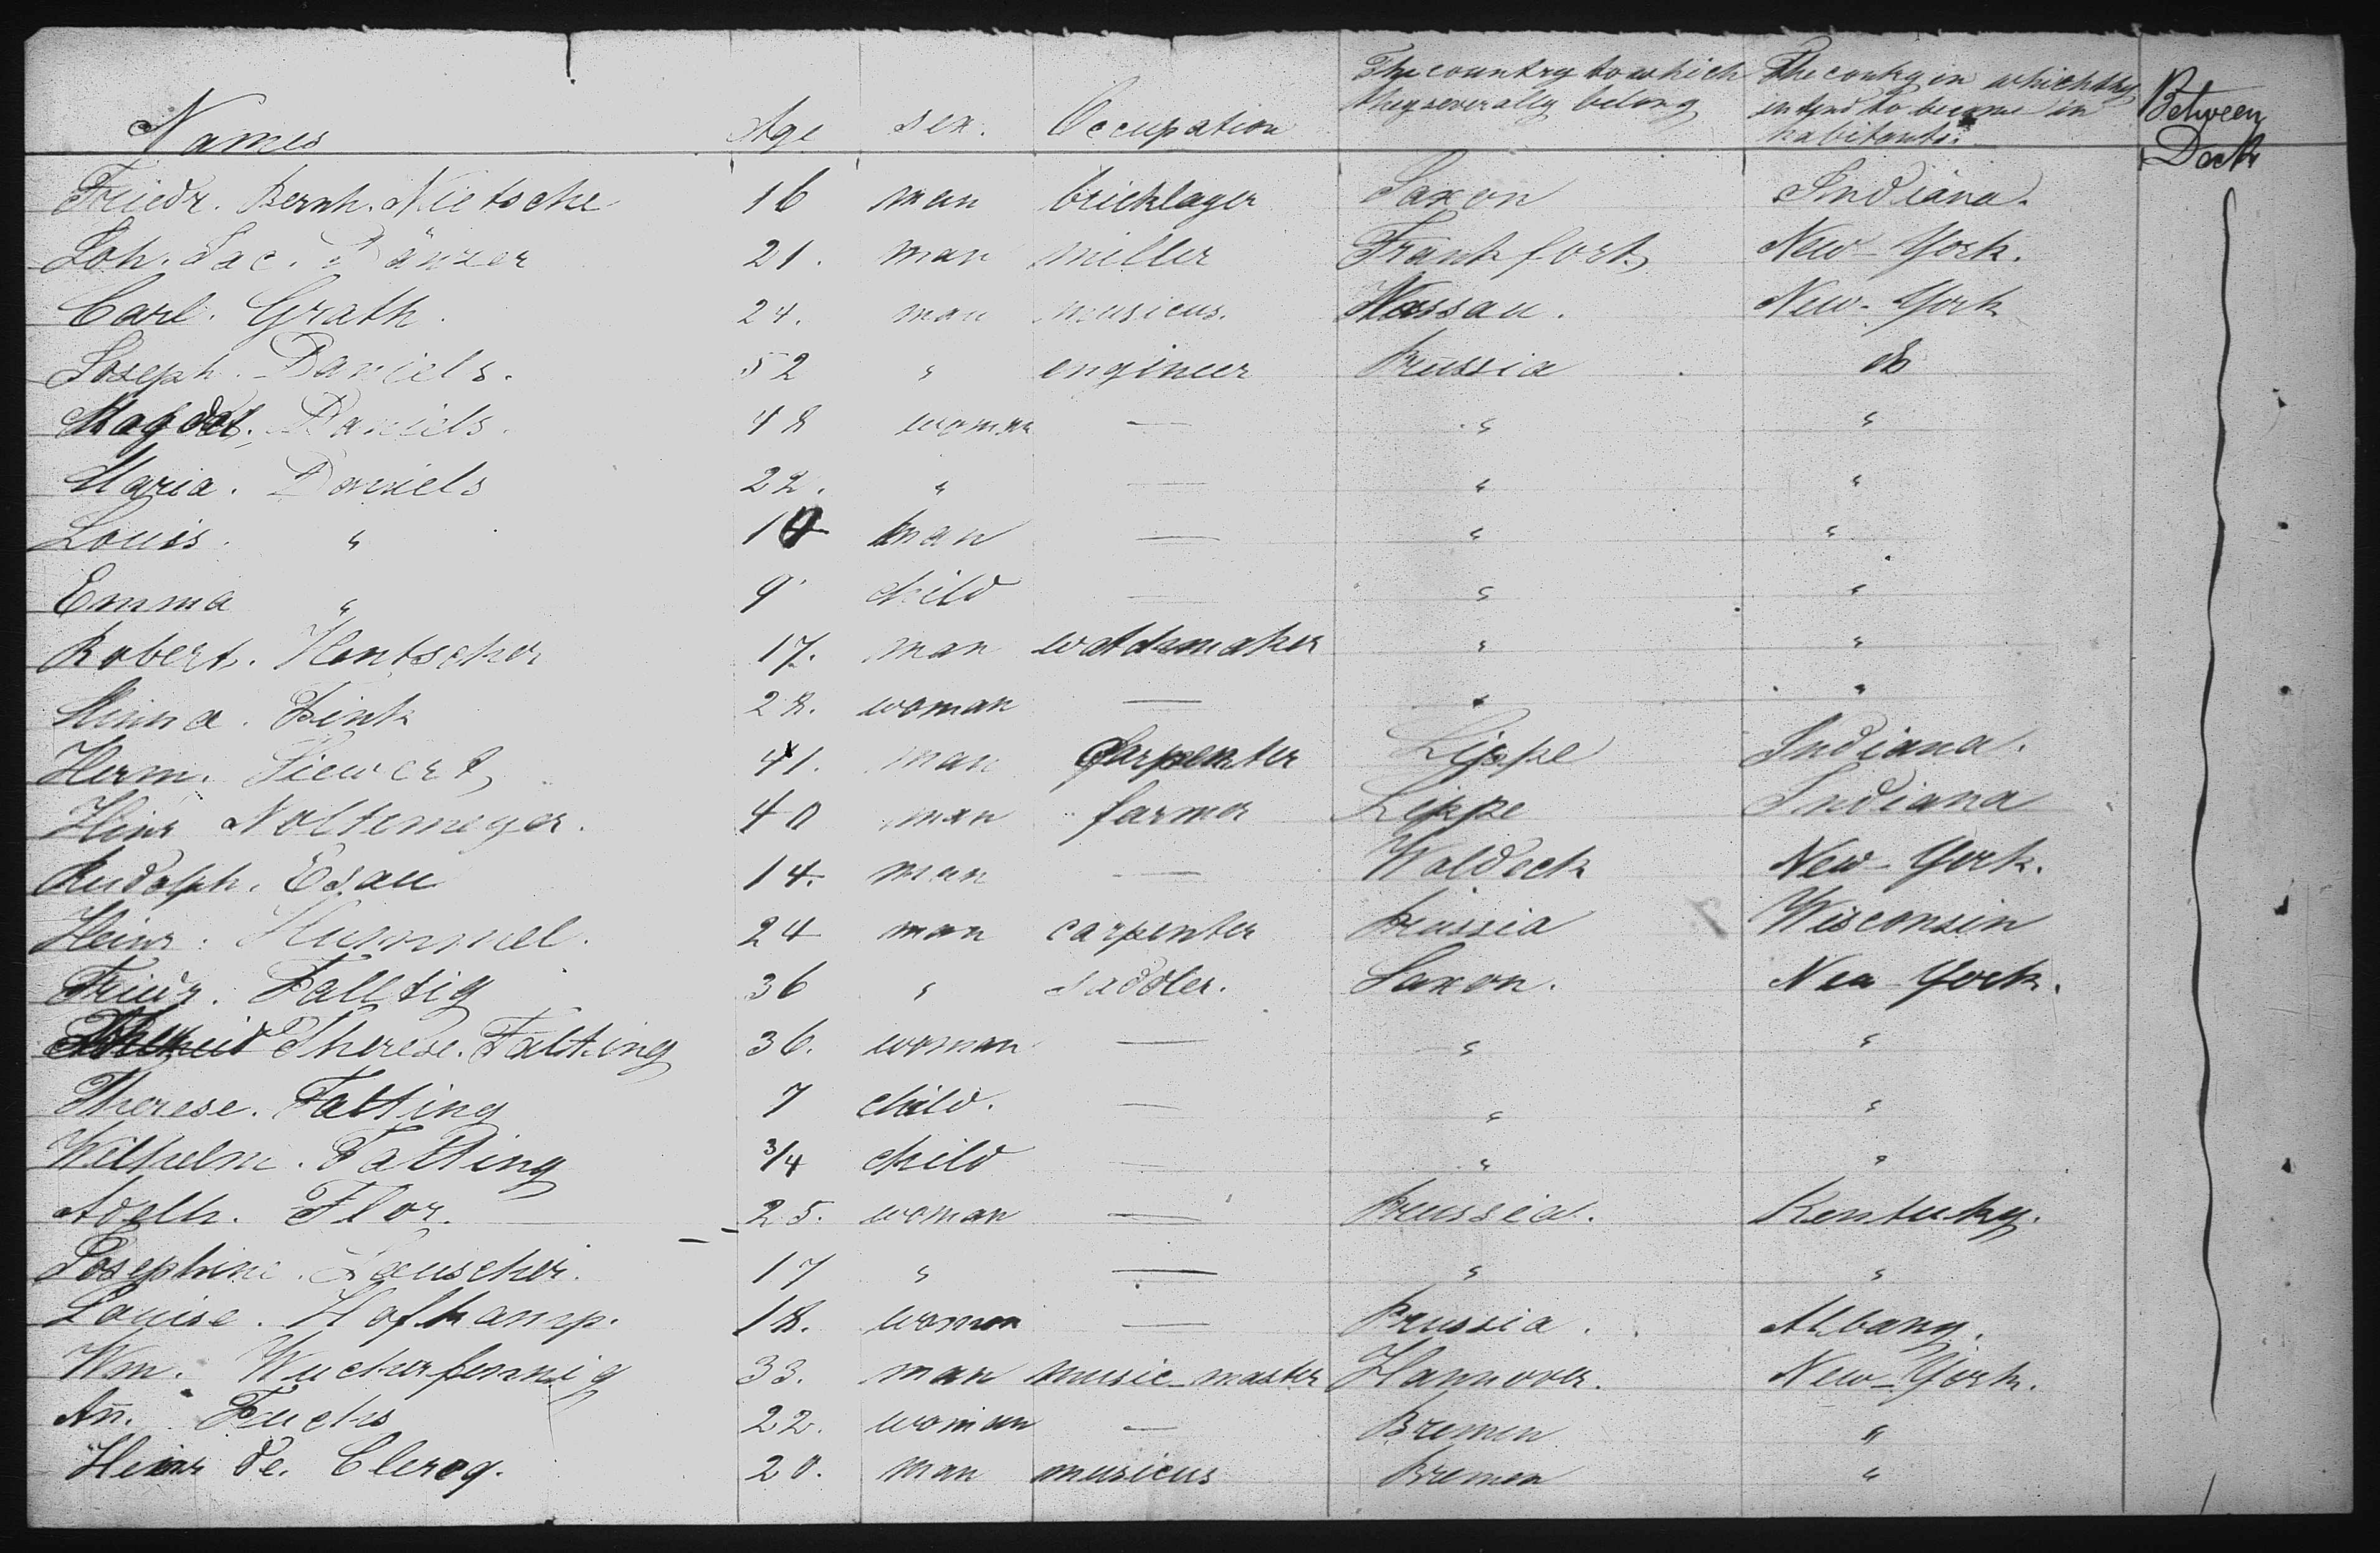 Names Age sex. Occupation The country to which they severally belong The contry in which they intend to become inhabitants. Between Deck
Friedr. Bernh. Nietsche 16 man bricklager Saxon Indiana.
Joh. Jac. Dänzer 21. man miller Frankfort New-York.
Carl. Grath. 24. man musicus. Nassau. New-York
Joseph. Daniels. 52 " engineer Prussia do
Magdal. Daniels. 48 woman — " "
Maria. Daniels 22. " — " "
Louis. " 14 man — " "
Emma " 9 child — " "
Robert. Hentscher 17. man watchmaker " "
Minna. Fink 28. woman — " "
Herm. Siewert 41. man Carpenter Lippe Indiana.
Hinr Noltemeyer. 40 man farmer Lippe Indiana
Rudolph. Esau 14. man — Waldeck New-York.
Heinr. Hummel. 24 man carpenter Prussia Wisconsin
Friedr. Falltig 36 " saddler. Saxon. New-York.
Therese. Falting 36. woman — " "
Therese. Falting 7 child. — " "
Wilhelm. Falting 3/4 child — " "
Adelh. Flor. 25. woman — Prussia. Kentuky.
Josephine. 17 " — " "
Louise. Hofkamp. 18. woman — Prussia. Albany.
Wm. Wucherfennig 33. man music-master Hannover. New-York.
An. Fuchs 22. woman — Bremen "
Heinr de. Clercq. 20. man musicus Bremen "